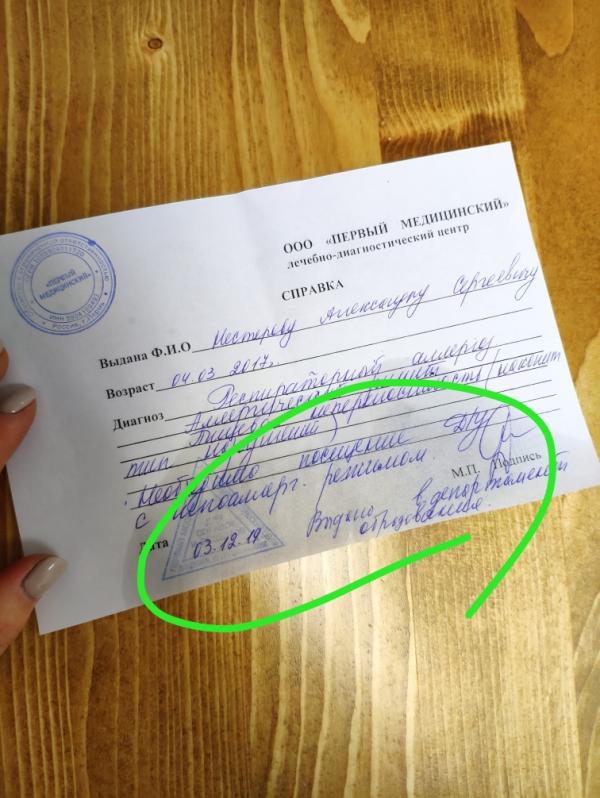 ООО «ПЕРВЫЙ МЕДИЦИНСКИЙ»
лечебно-диагностический центр
СПРАВКА
«ПЕРВЫЙ
МЕДИЦИНСКИЙ»
Выдана Ф.И.О Нестерову Александру Сергеевичу
Возраст 04.03 2017г.
Диагноз Респираторной аллергоз
Аллергический
Пищевая непереносимость (накопит
тип
Необходимо посещение ДУ
с гипоаллерг. режимом
М.П. Подпись
Дата 03.12.19 Выдано в департамент
образования.